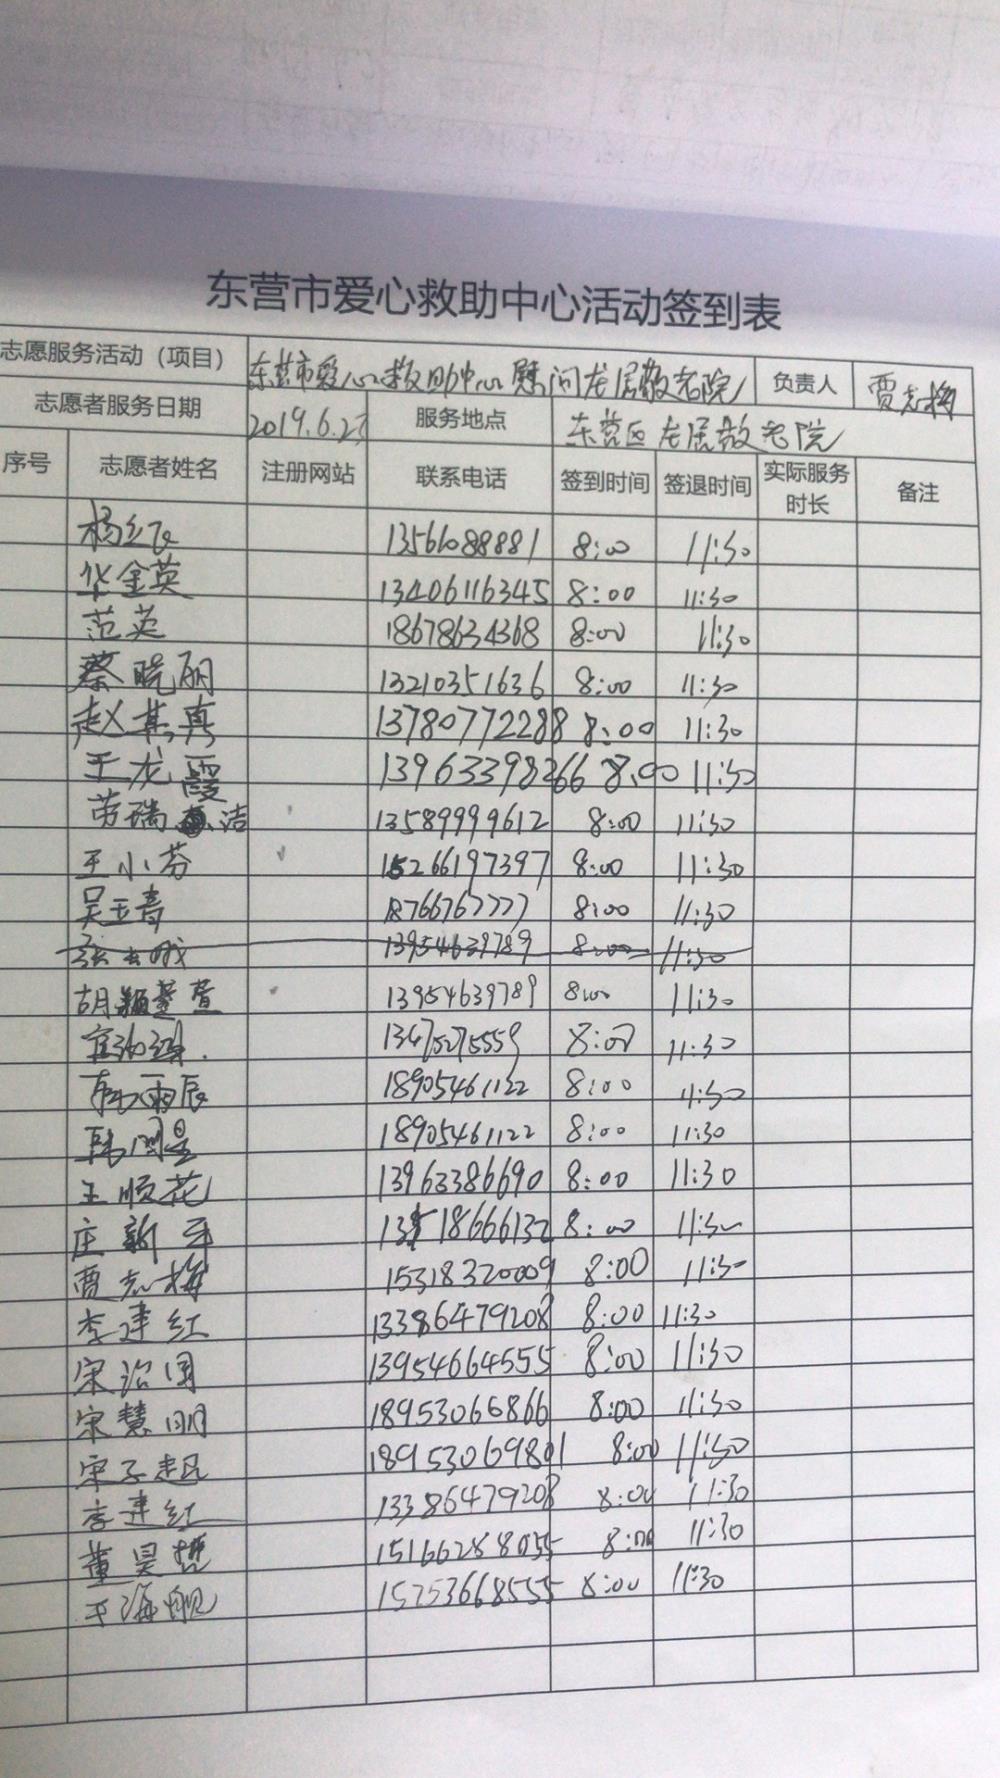 东营市爱心救助中心活动签到表
志愿服务活动（项目） 东营市爱心救助中心慰问龙居敬老院 负责人 贾志梅
志愿者服务日期 2019.6.23 服务地点 东营区龙居敬老院
序号 志愿者姓名 注册网站 联系电话 签到时间 签退时间 实际服务时长 备注
13561088881 8:00 11:30
华金英 13406116345 8:00 11:30
范英 18678634368 8:00 11:30
蔡晓丽 13210351636 8:00 11:30
赵其真 13780772288 8:00 11:30
王龙霞 13963398266 8:00 11:30
劳瑞洁 13589999612 8:00 11:30
王小芬 15266197397 8:00 11:30
吴玉青 18766767777 8:00 11:30
13954639789 8:00 11:30
胡颖萱 13954639789 8:00 11:30
13475275559 8:00 11:30
韩雨辰 18905461122 8:00 11:30
韩明星 18905461122 8:00 11:30
王顺花 13963386690 8:00 11:30
庄新云 8:00 11:30
贾志梅 15318320009 8:00 11:30
李建红 13386479208 8:00 11:30
宋治国 13954664555 8:00 11:30
宋慧明 18953066866 8:00 11:30
宋子起 18953069801 8:00 11:30
李建红 13386479208 8:00 11:30
董昊哲 15166288055 8:00 11:30
王海舰 15253668555 8:00 11:30